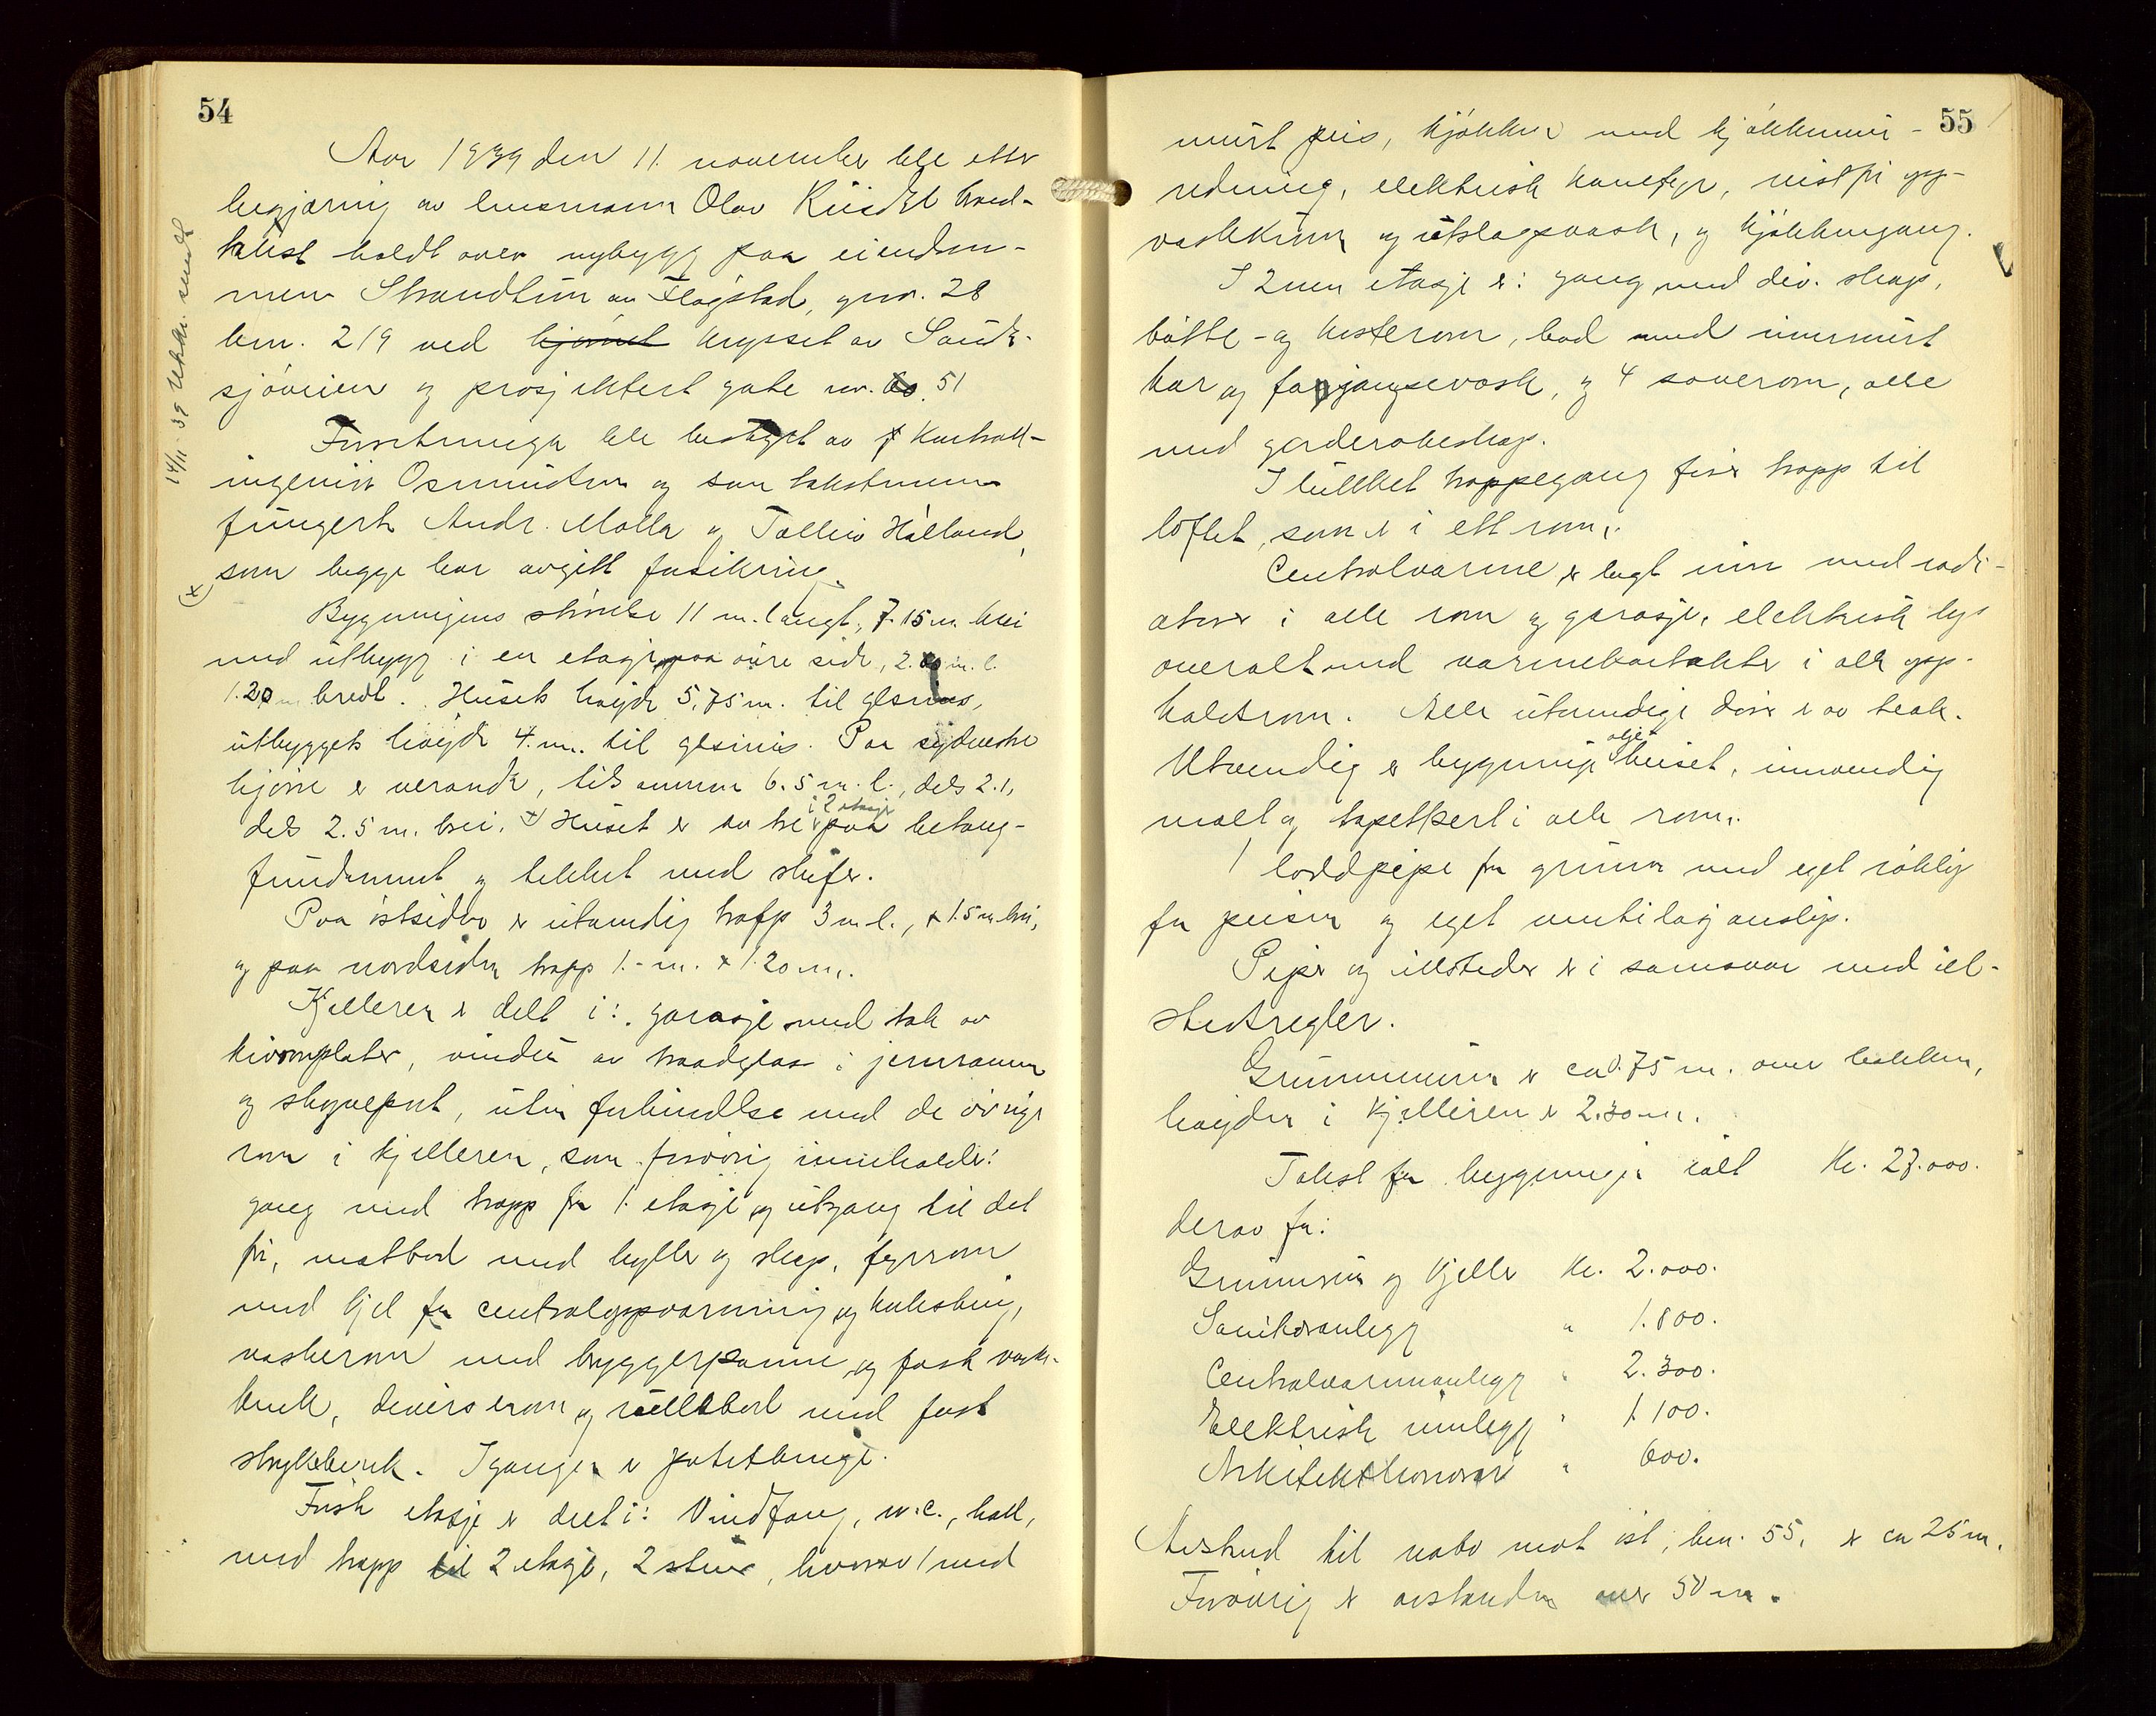 54
Aar 1939 den 11. november ble etter
begjæring av lensmann Olav Riisdal brand-
takst holdt over nybygg paa eiendom-
men Strandtun av Flogstad, gnr. 28
bnr. 219 ved hjørnet krysset av Sauda-
sjøveien og prosjektert gate nr. 60 51
Forretningen ble bestyrt av Kontroll-
ingeniør Osmundsen og som takstmenn
fungerte Andr. Molla og Tolleiv Hålland,
som begge har avgitt forsikring.
x)
Bygningens størrelse 11 m. langt, 7.15 m. brei
med utbygg i en etasje paa øvre side, 2.80 m. l.
1.20 m bredt. Husets høyde 5,75 m. til gesims,
utbyggets høyde 4. m. til gesims. Paa sydvestre
hjørne er veranda, tilsammen 6.5 m. l., dels 2.1,
dels 2.5 m. brei. x) Huset er av tre i 2 etasjer paa betong-
fundament og tekket med skifer.
Paa østsiden er utvendig trapp 3 m l., x 1.5 m. brei,
og paa nordsiden trapp 1.- m. x 1.20 m.
Kjelleren er delt i: garasje med tak av
plater, vindu av traadglas i jernramme
og skyveport, uten forbindelse med de øvrige
rom i kjelleren, som forøvrig inneholder:
gang med trapp fra 1. etasje og utgang til det
fri, matbod med hyller og skap, fyrrom
med kjel for centralopvarming og koksbing,
vaskerom med bryggerpanne og fast vaske-
benk, diverserom og rullebod med fast
strykebenk. I gangen er potetbinge.
Første etasje er delt i: Vindfang, w.c., hall,
med trapp til 2 etasje, 2 stuer, hvorav 1 med
14/11-39 Utskr. sendt
55
murt peis, kjøkken med kjøkkeninn-
redning, elektrisk komfyr, rustfri opp-
vaskkum og utslagsvask, og kjøkkengang.
I 2nen etasje er: gang med div. skap,
bøtte- og kosterom, bad med innmurt
kar og forgjengsevask, og 4 soverom, alle
med garderobeskap.
I lukket trappegang fører trapp til
loftet, som er i ett rom.
Centralvarme er lagt inn med radi-
atorer i alle rom og garasje, elektrisk lys
overalt med varmekontakter i alle opp-
holdsrom. Alle utvendige dører er av teak.
Utvendig er bygningen olje beiset, innvendig
malt og tapetsert i alle rom.
1 loddpipe fra grunn med eget røkløp
for peisen og eget ventilasjonsløp.
Piper og ildsteder er i samsvar med ild-
stedsregler.
Grunnmuren er ca 0.75 m. over bakken,
høyden i kjelleren er 2.30 m.
Takst for bygningen ialt Kr. 27.000.
derav for:
Grunnmur og kjeller Kr. 2.000.
Sanitæranlegg " 1.800.
Centralvarmeanlegg " 2.300.
Elektrisk innlegg " 1.100.
Arkitekthonorar " 600.
Avstand til nabo mot øst, bnr. 55, er ca 25 m.
Forøvrig er avstanden over 50 m.